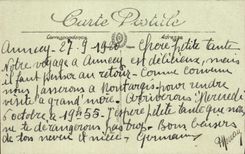 Carte Postale
Correspondance
Adresse
Annecy 27-9-1920 - Chère petite tante
Notre voyage à Annecy est délicieux, mais
il faut penser au retour. Comme convenu
nous passerons à Montargis pour rendre
visite à grand'mère. Arriverons Mercredi
6 octobre à 19h55. J'espère petite tante que nous
ne te dérangerons pas trop. Bons baisers
de ton neveu et nièce - Germaine